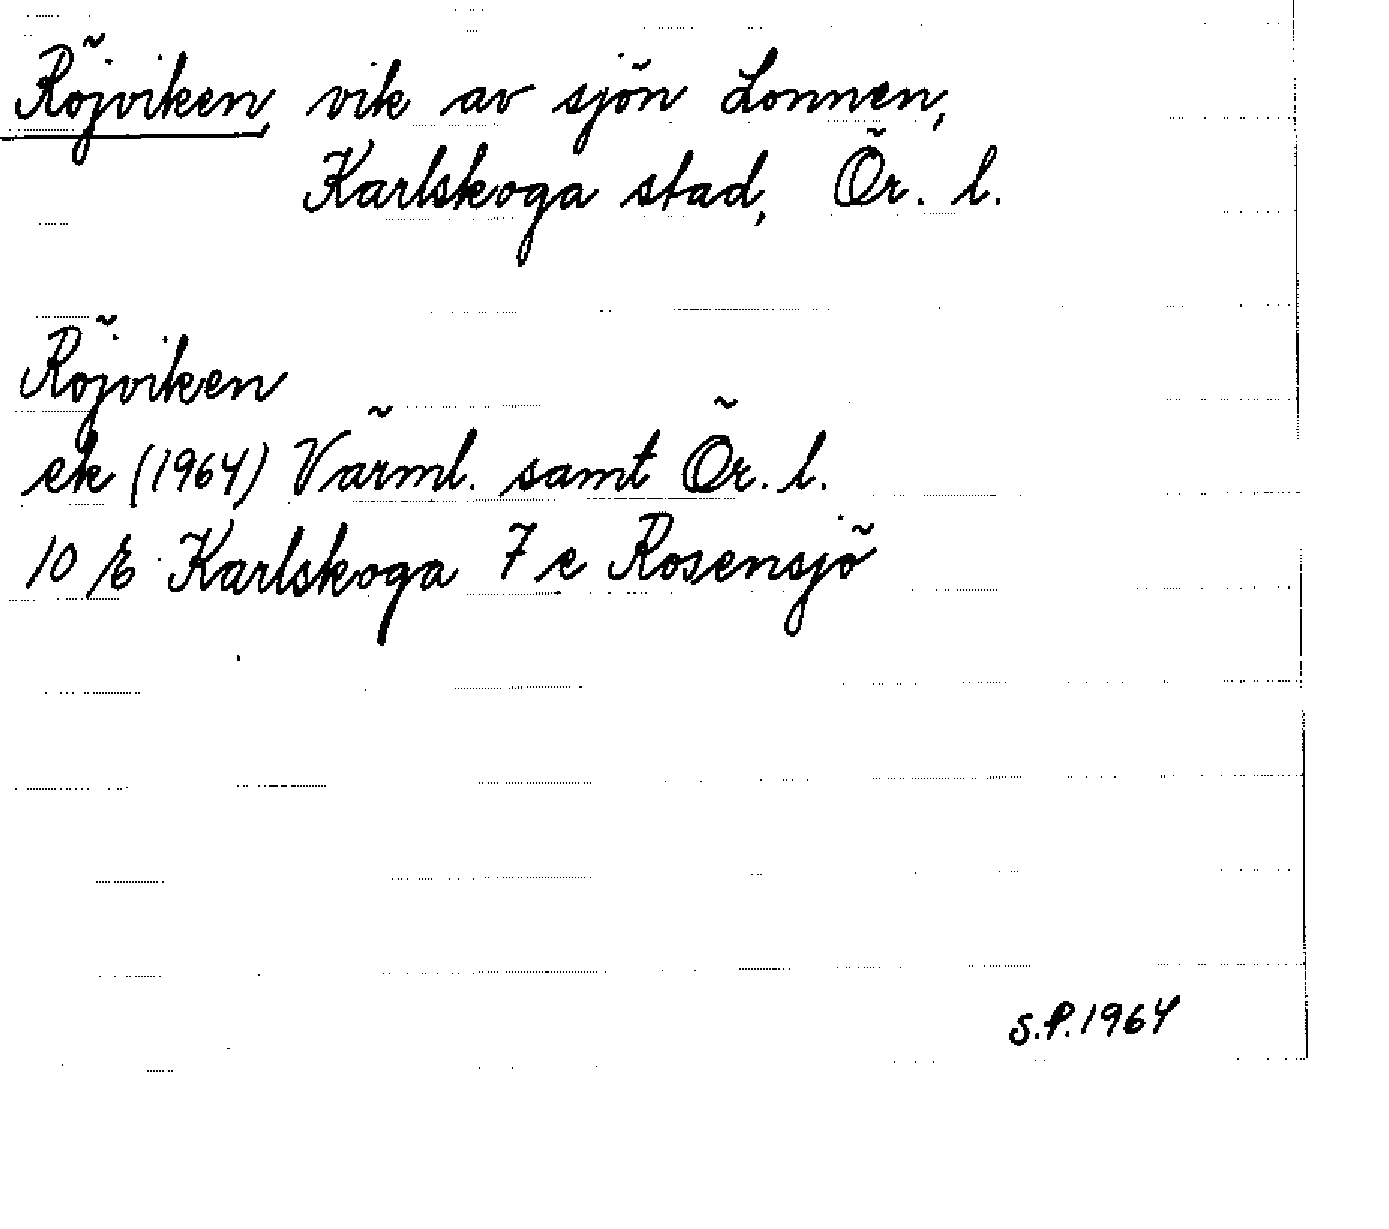 Röjviken, vik av sjön Lonnen,
Karlskoga stad, Ör. l.
Röjviken
ek (1964) Värml. samt Ör. l.
10 E Karlskoga 7 e Rosensjö
S.P. 1964